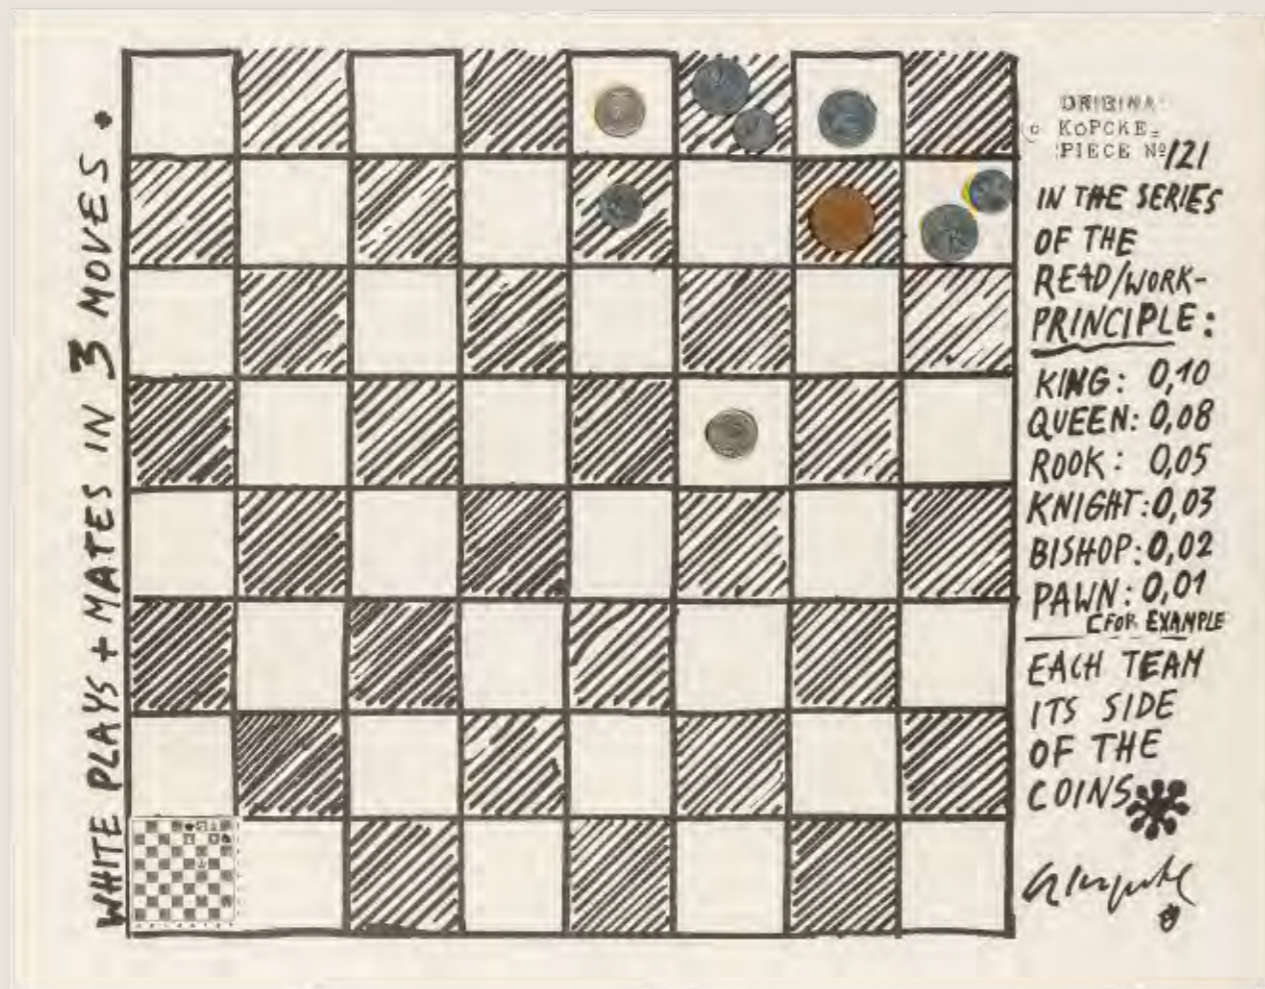 WHITE PLAYS + MATES IN 3 MOVES.
ORIGINA
c KOPCKE=
PIECE Nº121
IN THE SERIES
OF THE
READ/WORK-
PRINCIPLE:
KING: 0,10
QUEEN: 0,08
ROOK: 0,05
KNIGHT: 0,03
BISHOP: 0,02
PAWN: 0,01
(FOR EXAMPLE
EACH TEAM
ITS SIDE
OF THE
COINS